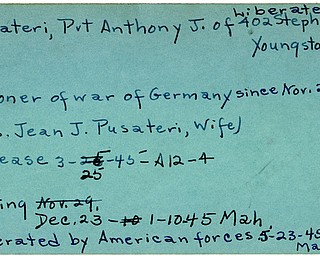 Liberate
ateri, Pvt Anthony J. of 402 Steph
Youngsto
oner of war of Germany since Nov. 2
. Jean J. Pusateri, Wife)
ease 3-25-45-A12-4
25
ing Nov. 29.
Dec. 23 - 1-10-45 Mah
erated by American forces 5-23-45
Ma